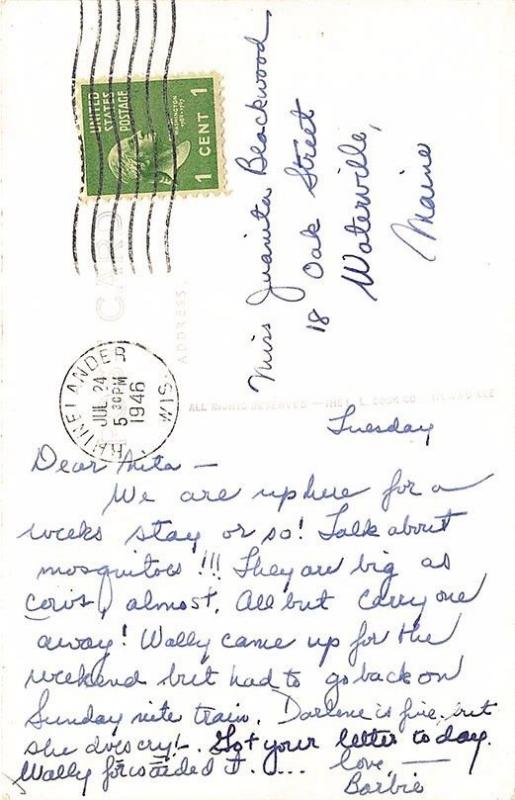 UNITED
STATES
POSTAGE
1 CENT 1
Miss Juanita Blackwood
18 Oak Street
Waterville,
Maine
CARD
ADDRESS
RHINELANDER
WIS.
JUL 24
5 30 PM
1946
ALL RIGHTS RESERVED — THE L. L. COOK CO.
Tuesday
Dear Nita —
We are up here for a
weeks stay or so! Talk about
mosquitoes!!! They are big as
cows, almost. All but carry one
away! Wally came up for the
weekend but had to go back on
Sunday nite train. Darlene is fine but
she does cry!. Got your letter today.
Wally forwarded it. ... love, —
Barbie